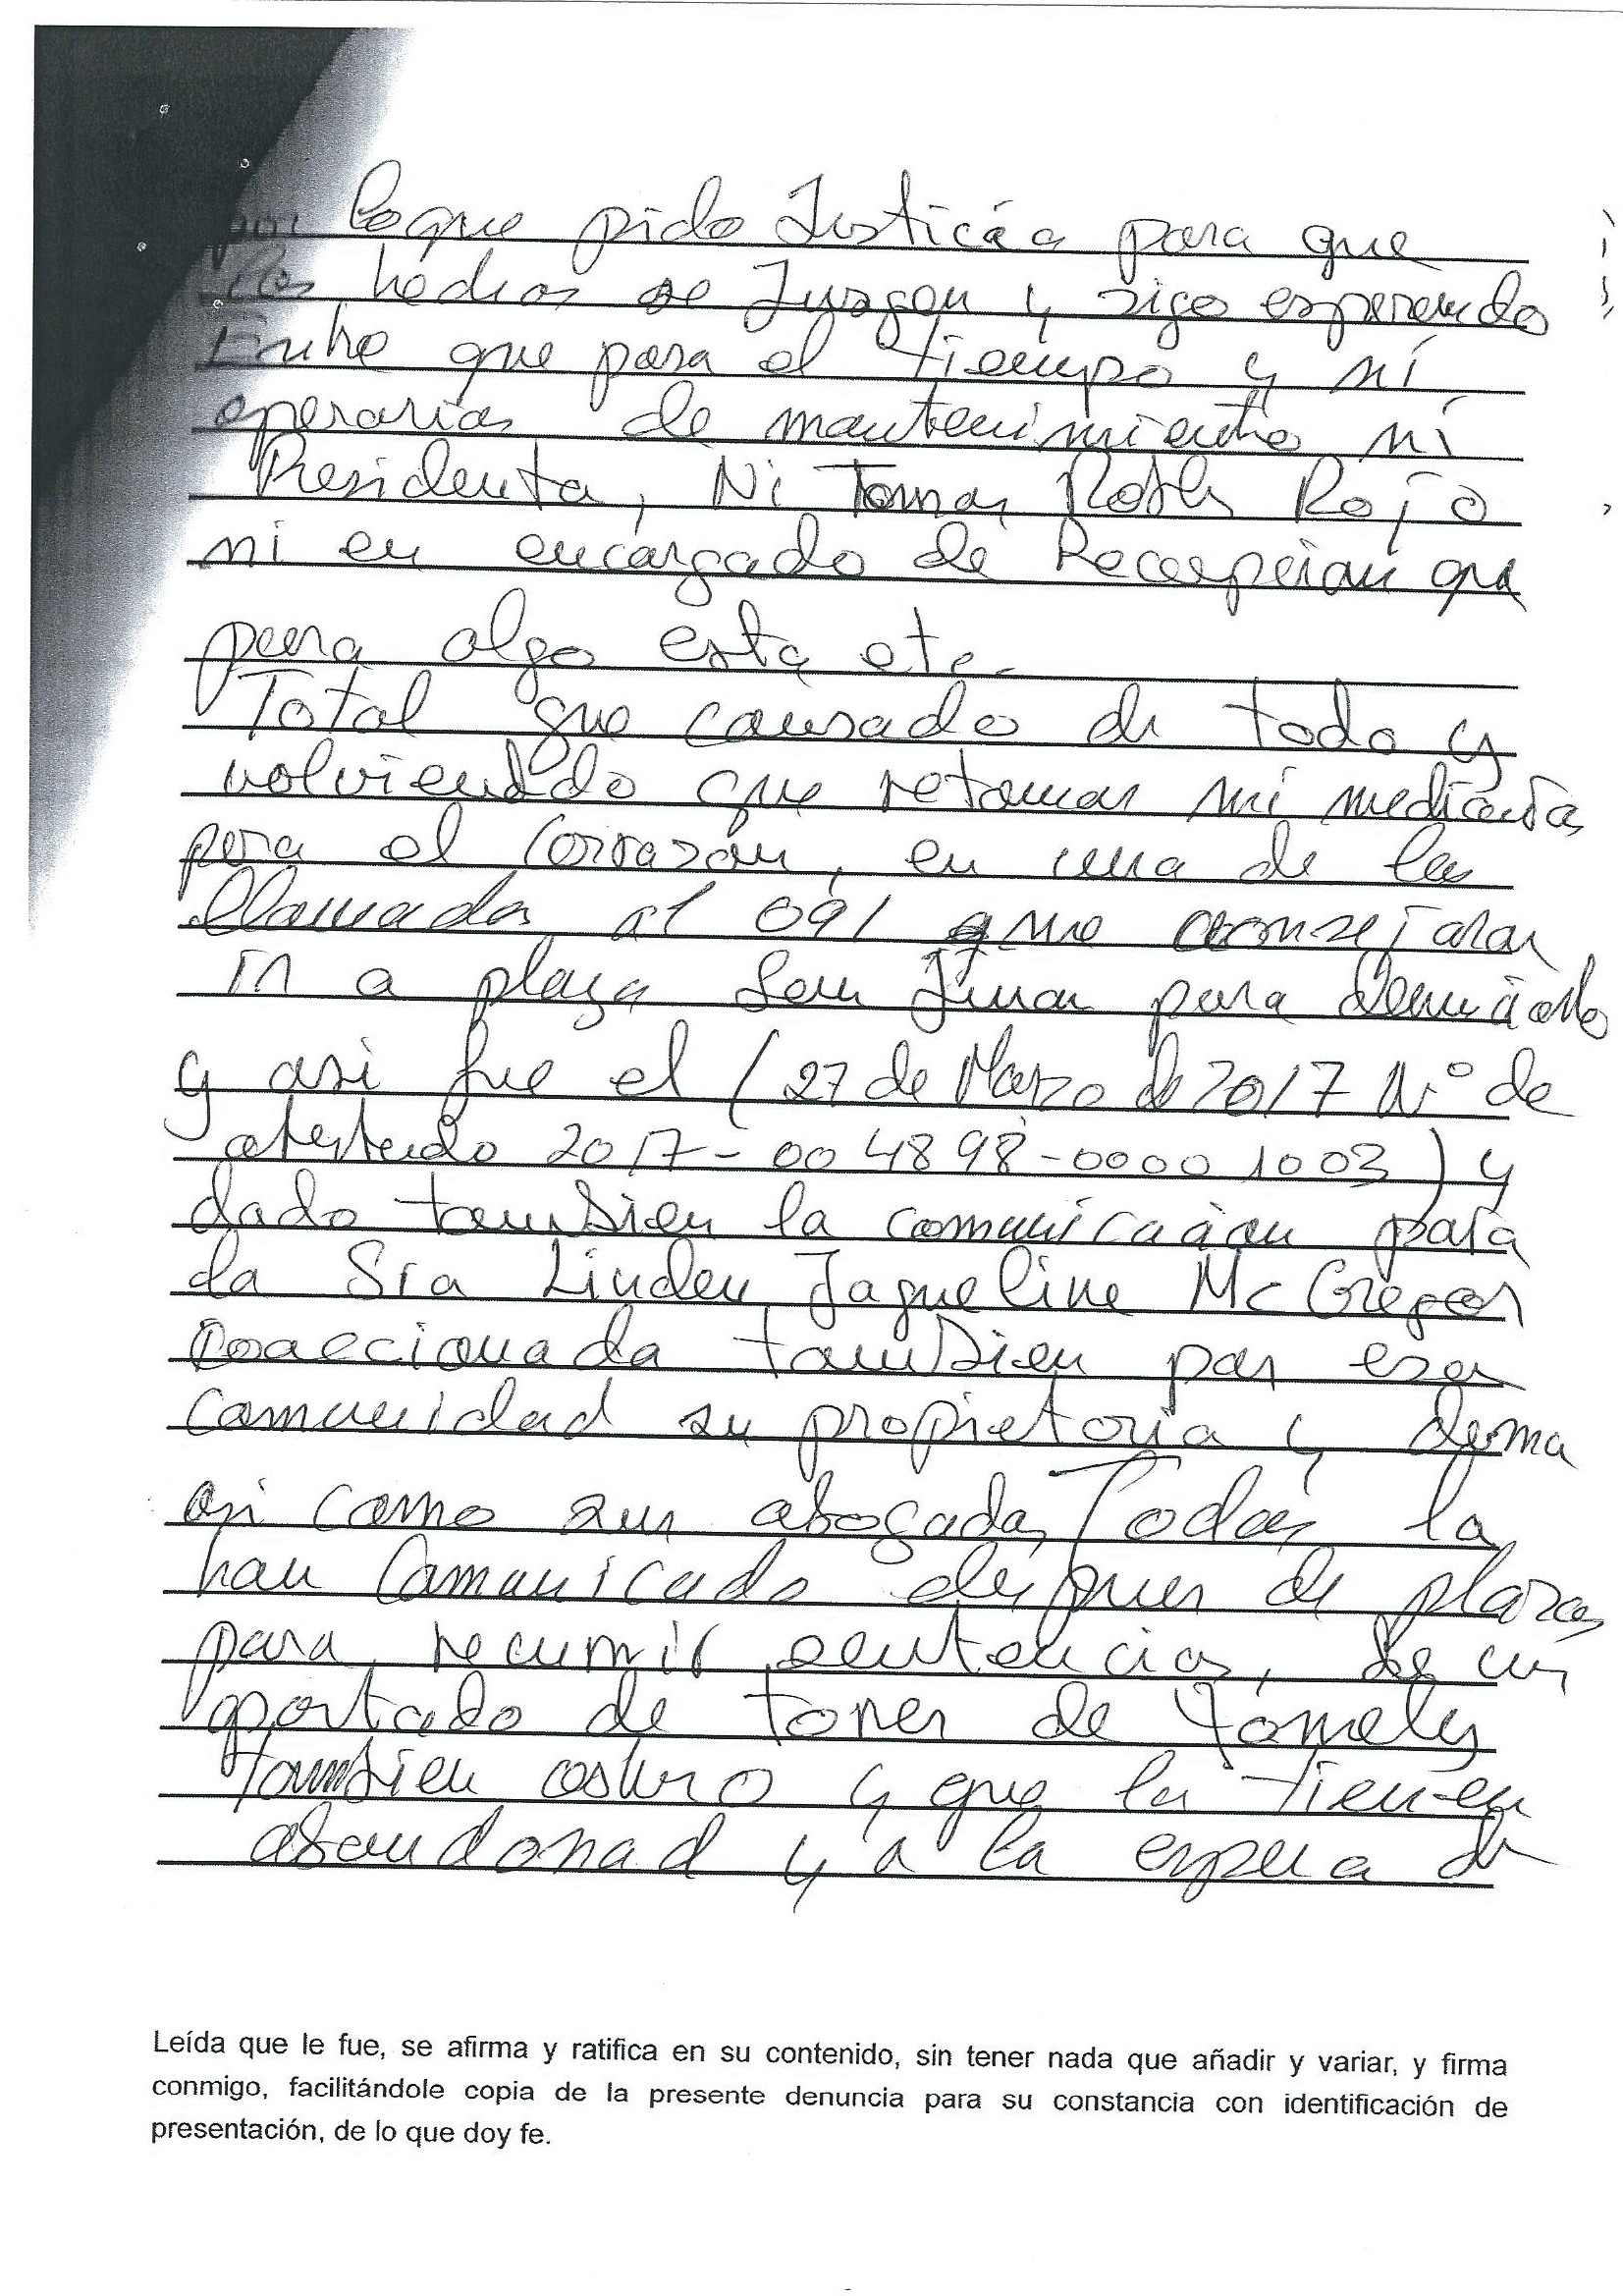 por lo que pido Justicia para que
los hechos se Juzgen y sigo esperando
Entre que pasa el tiempo y ni
operarios de mantenimiento ni
Presidenta, Ni Tomas Robles Rojo
ni en encargado de Recepcion que
para algo esta etc.
Total que cansado de todo y
volviendo que retomar mi medicantas
para el Corrazon, en una de las
llamadas al 091 que aconsejaran
ir a plaza San Juan para denunciarlo
y asi fue el (27 de Marzo de 2017 Nº de
atestado 2017-004898-00001003) y
dado tambien la comunicacion para
la Sra Linden Jaqueline McGregor
Coaccionada tambien por esa
Comunidad su propietaria y dema
asi como sus abogadas Todas la
han Comunicado despues de plazos
para recurrir sentencias, de un
apartado de torres de
tambien y que la tienen
abandonad y a la espera de
Leída que le fue, se afirma y ratifica en su contenido, sin tener nada que añadir y variar, y firma
conmigo, facilitándole copia de la presente denuncia para su constancia con identificación de
presentación, de lo que doy fe.